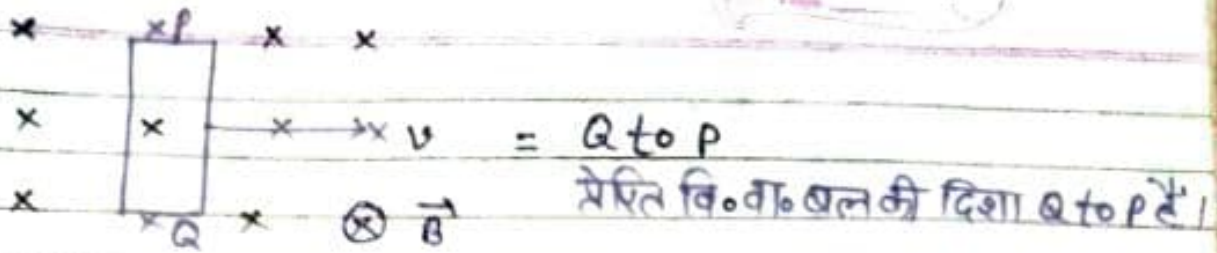 × ×P × ×
× × × × v = Q to P
प्रेरित वि०वा० बल की दिशा Q to P है।
× ×Q × ⊗ B⃗